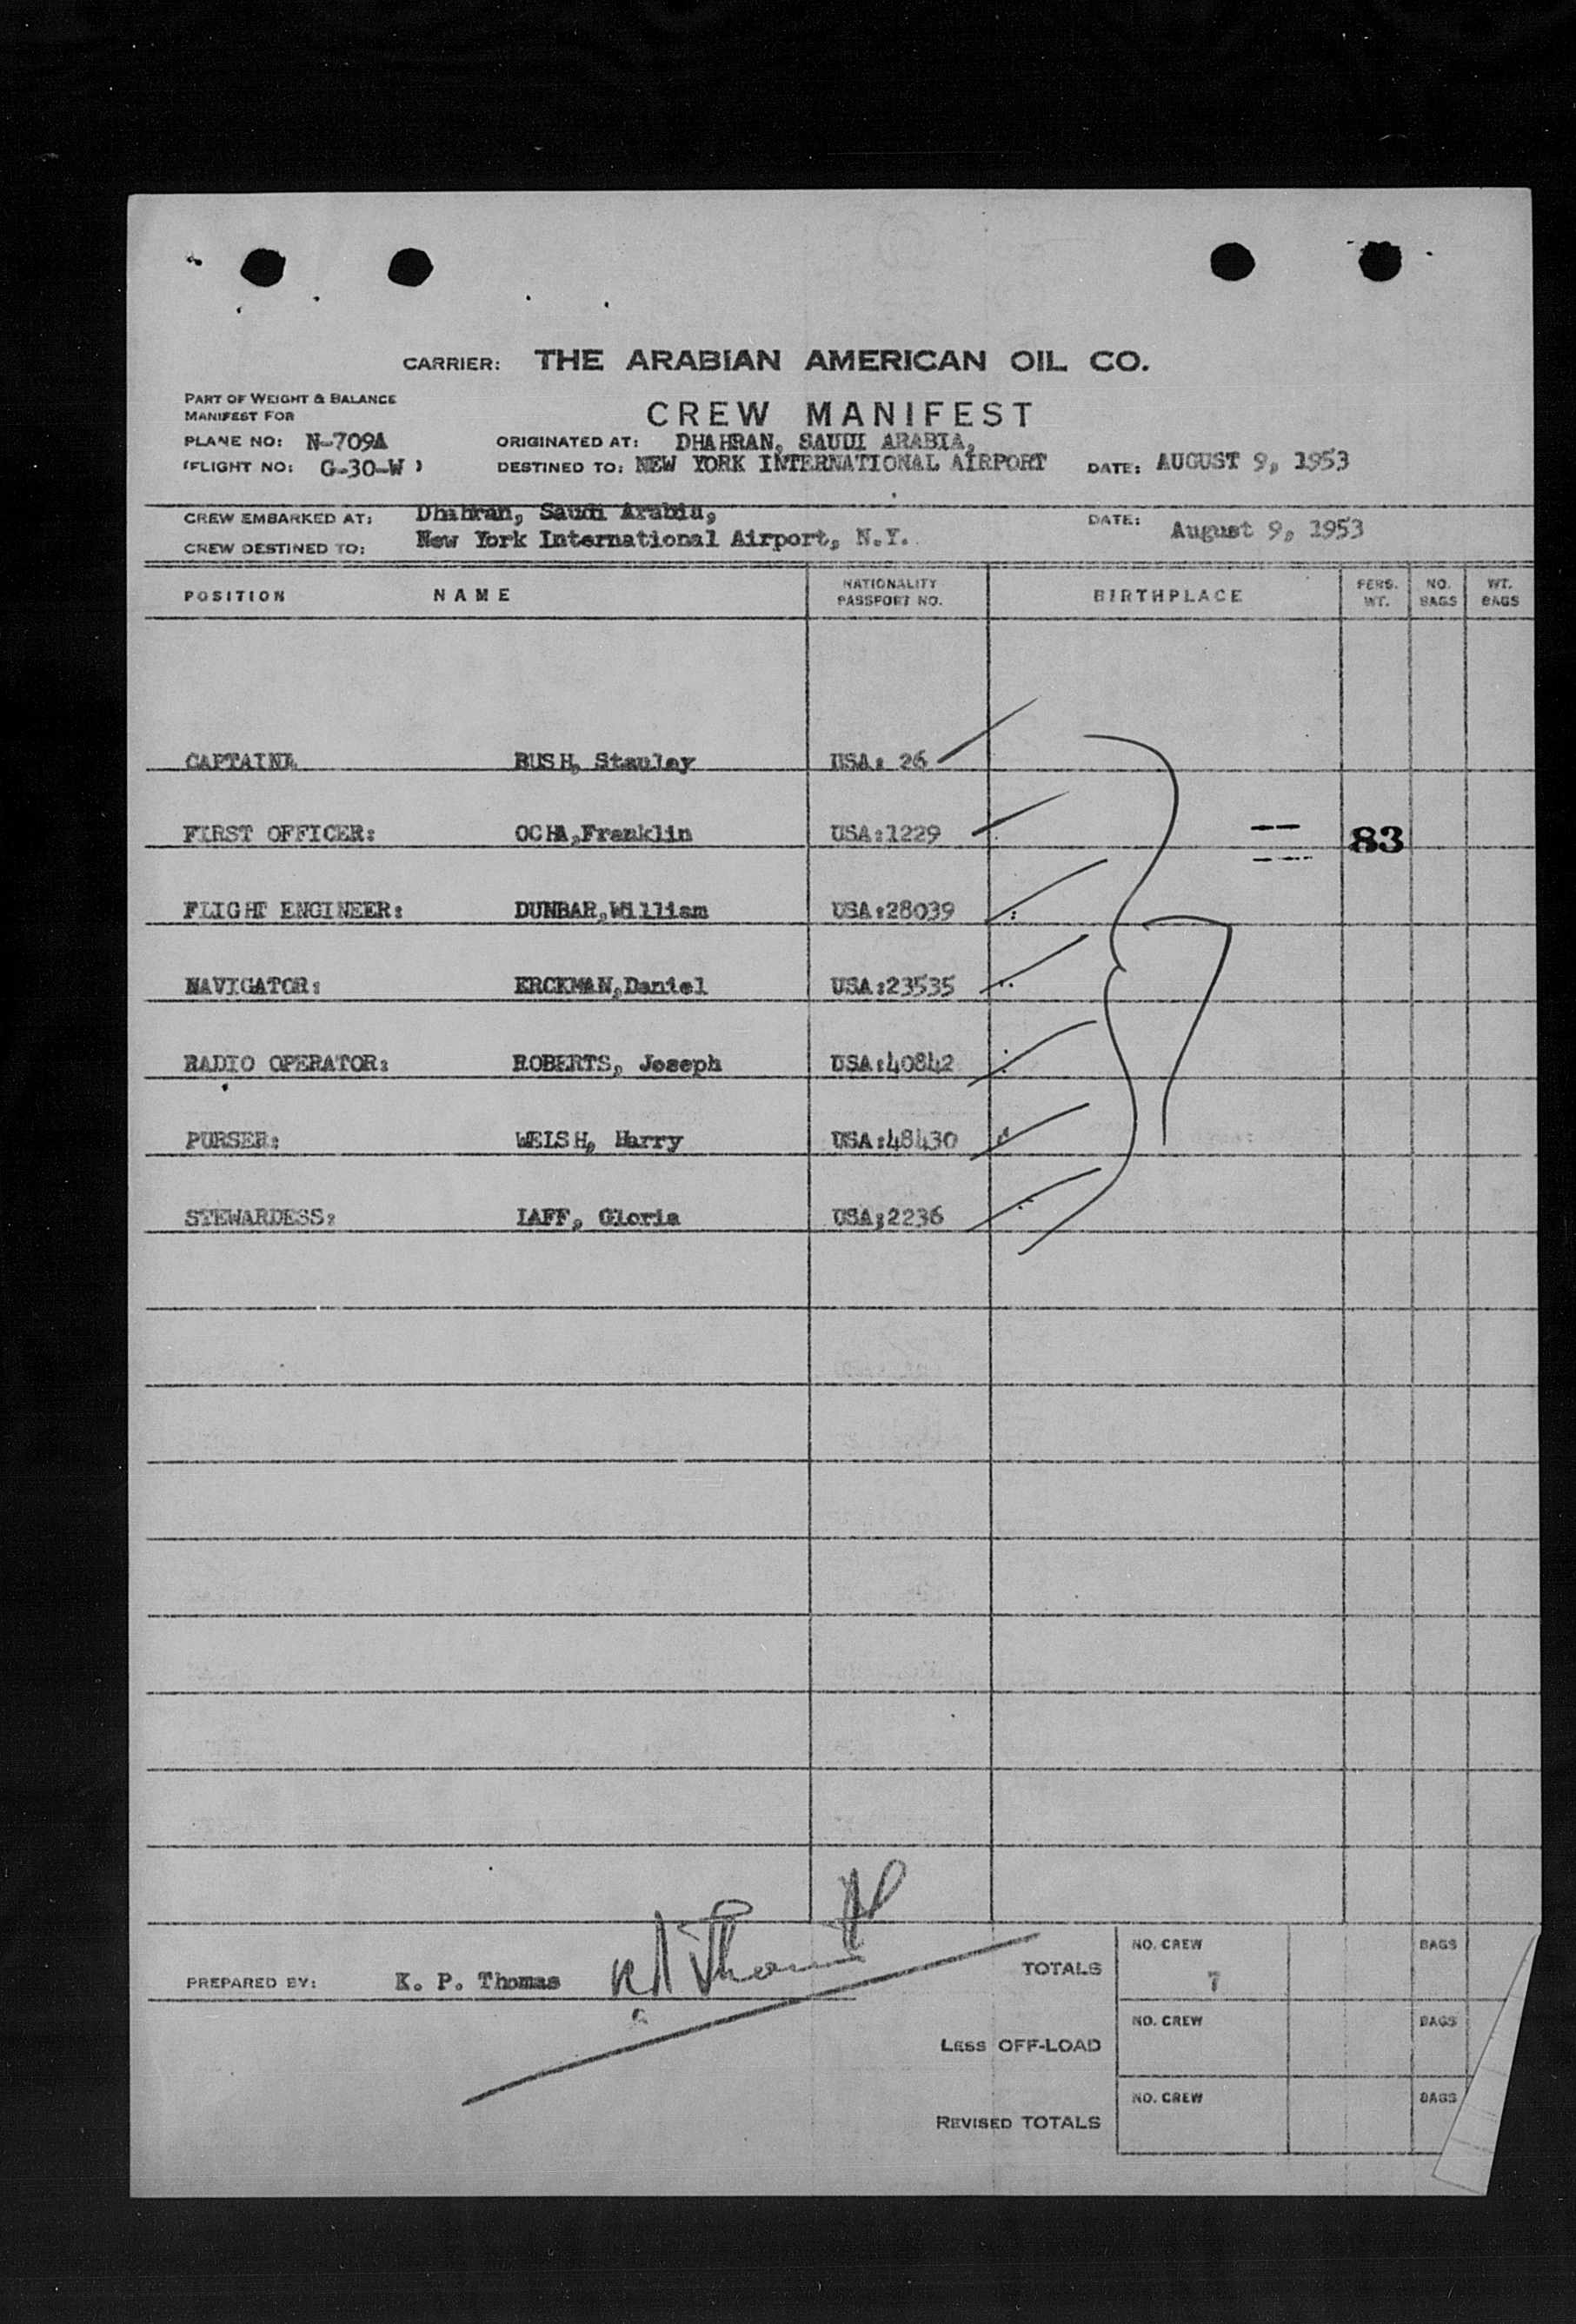 CARRIER: THE ARABIAN AMERICAN OIL CO.
PART OF WEIGHT & BALANCE
MANIFEST FOR
CREW MANIFEST
PLANE NO: N-709A ORIGINATED AT: DHAHRAN, SAUDI ARABIA,
(FLIGHT NO: G-30-W ) DESTINED TO: NEW YORK INTERNATIONAL AIRPORT DATE: AUGUST 9, 1953
CREW EMBARKED AT: Dhahran, Saudi Arabia, DATE: August 9, 1953
CREW DESTINED TO: New York International Airport, N.Y.
POSITION NAME NATIONALITY PASSPORT NO. BIRTHPLACE PERS. WT. NO. BAGS WT. BAGS
CAPTAIN: BUSH, Stanley USA: 26
FIRST OFFICER: OCHA,Franklin USA:1229 83
FLIGHT ENGINEER: DUNBAR,William USA:28039
NAVIGATOR: ERCKMAN,Daniel USA:23535
7
RADIO OPERATOR: ROBERTS, Joseph USA:40842
PURSER: WELSH, Harry USA:48430
STEWARDESS: IAFF, Gloria USA;2236
PREPARED BY: K. P. Thomas K P Thomas TOTALS NO. CREW 7 BAGS
LESS OFF-LOAD NO. CREW BAGS
REVISED TOTALS NO. CREW BAGS